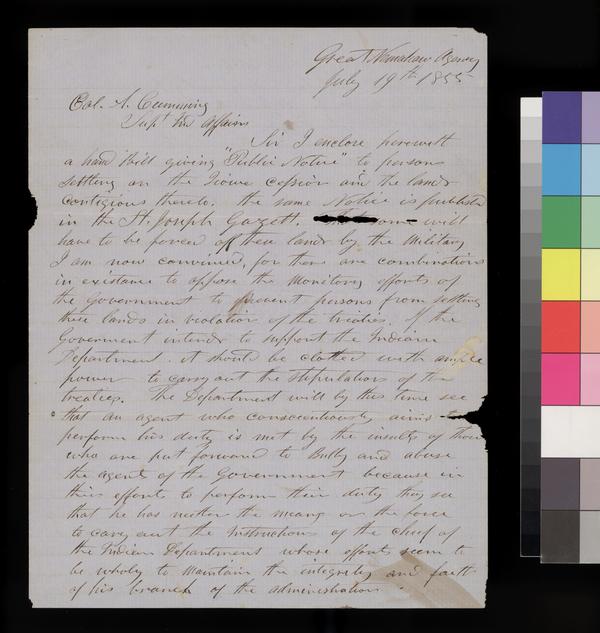 Great Nemahaw Agency
July 19th 1855
Col. A. Cumming
Supt Ind Affairs
Sir I enclose herewith
a hand Bill giving "Public Notice" to persons
settling on the Ioway Cession and the lands
contigious thereto. the same Notice is published
in the St. Joseph Gazett. Some will
have to be forced off these lands by the Military
I am now convinced, for there are combinations
in existance to oppose the Monitory efforts of
the Government to prevent persons from settling
these lands in violation of the treaties. If the
Government intends to support the Indian
Department. it should be clothed with ample
power to carry out the stipulations of the
treatys. The Department will by this time see
that an agent who consciensiously aims to
perform his duty is met by the insults of those
who are put forward to Bully and abuse
the agents of the Government because in
their efforts to perform their duty they see
that he has neither the means or the force
to carry out the Instructions of the chief of
the Indian Department whose efforts seem to
be wholy to maintain the integrity and faith
of his branch of the administration.